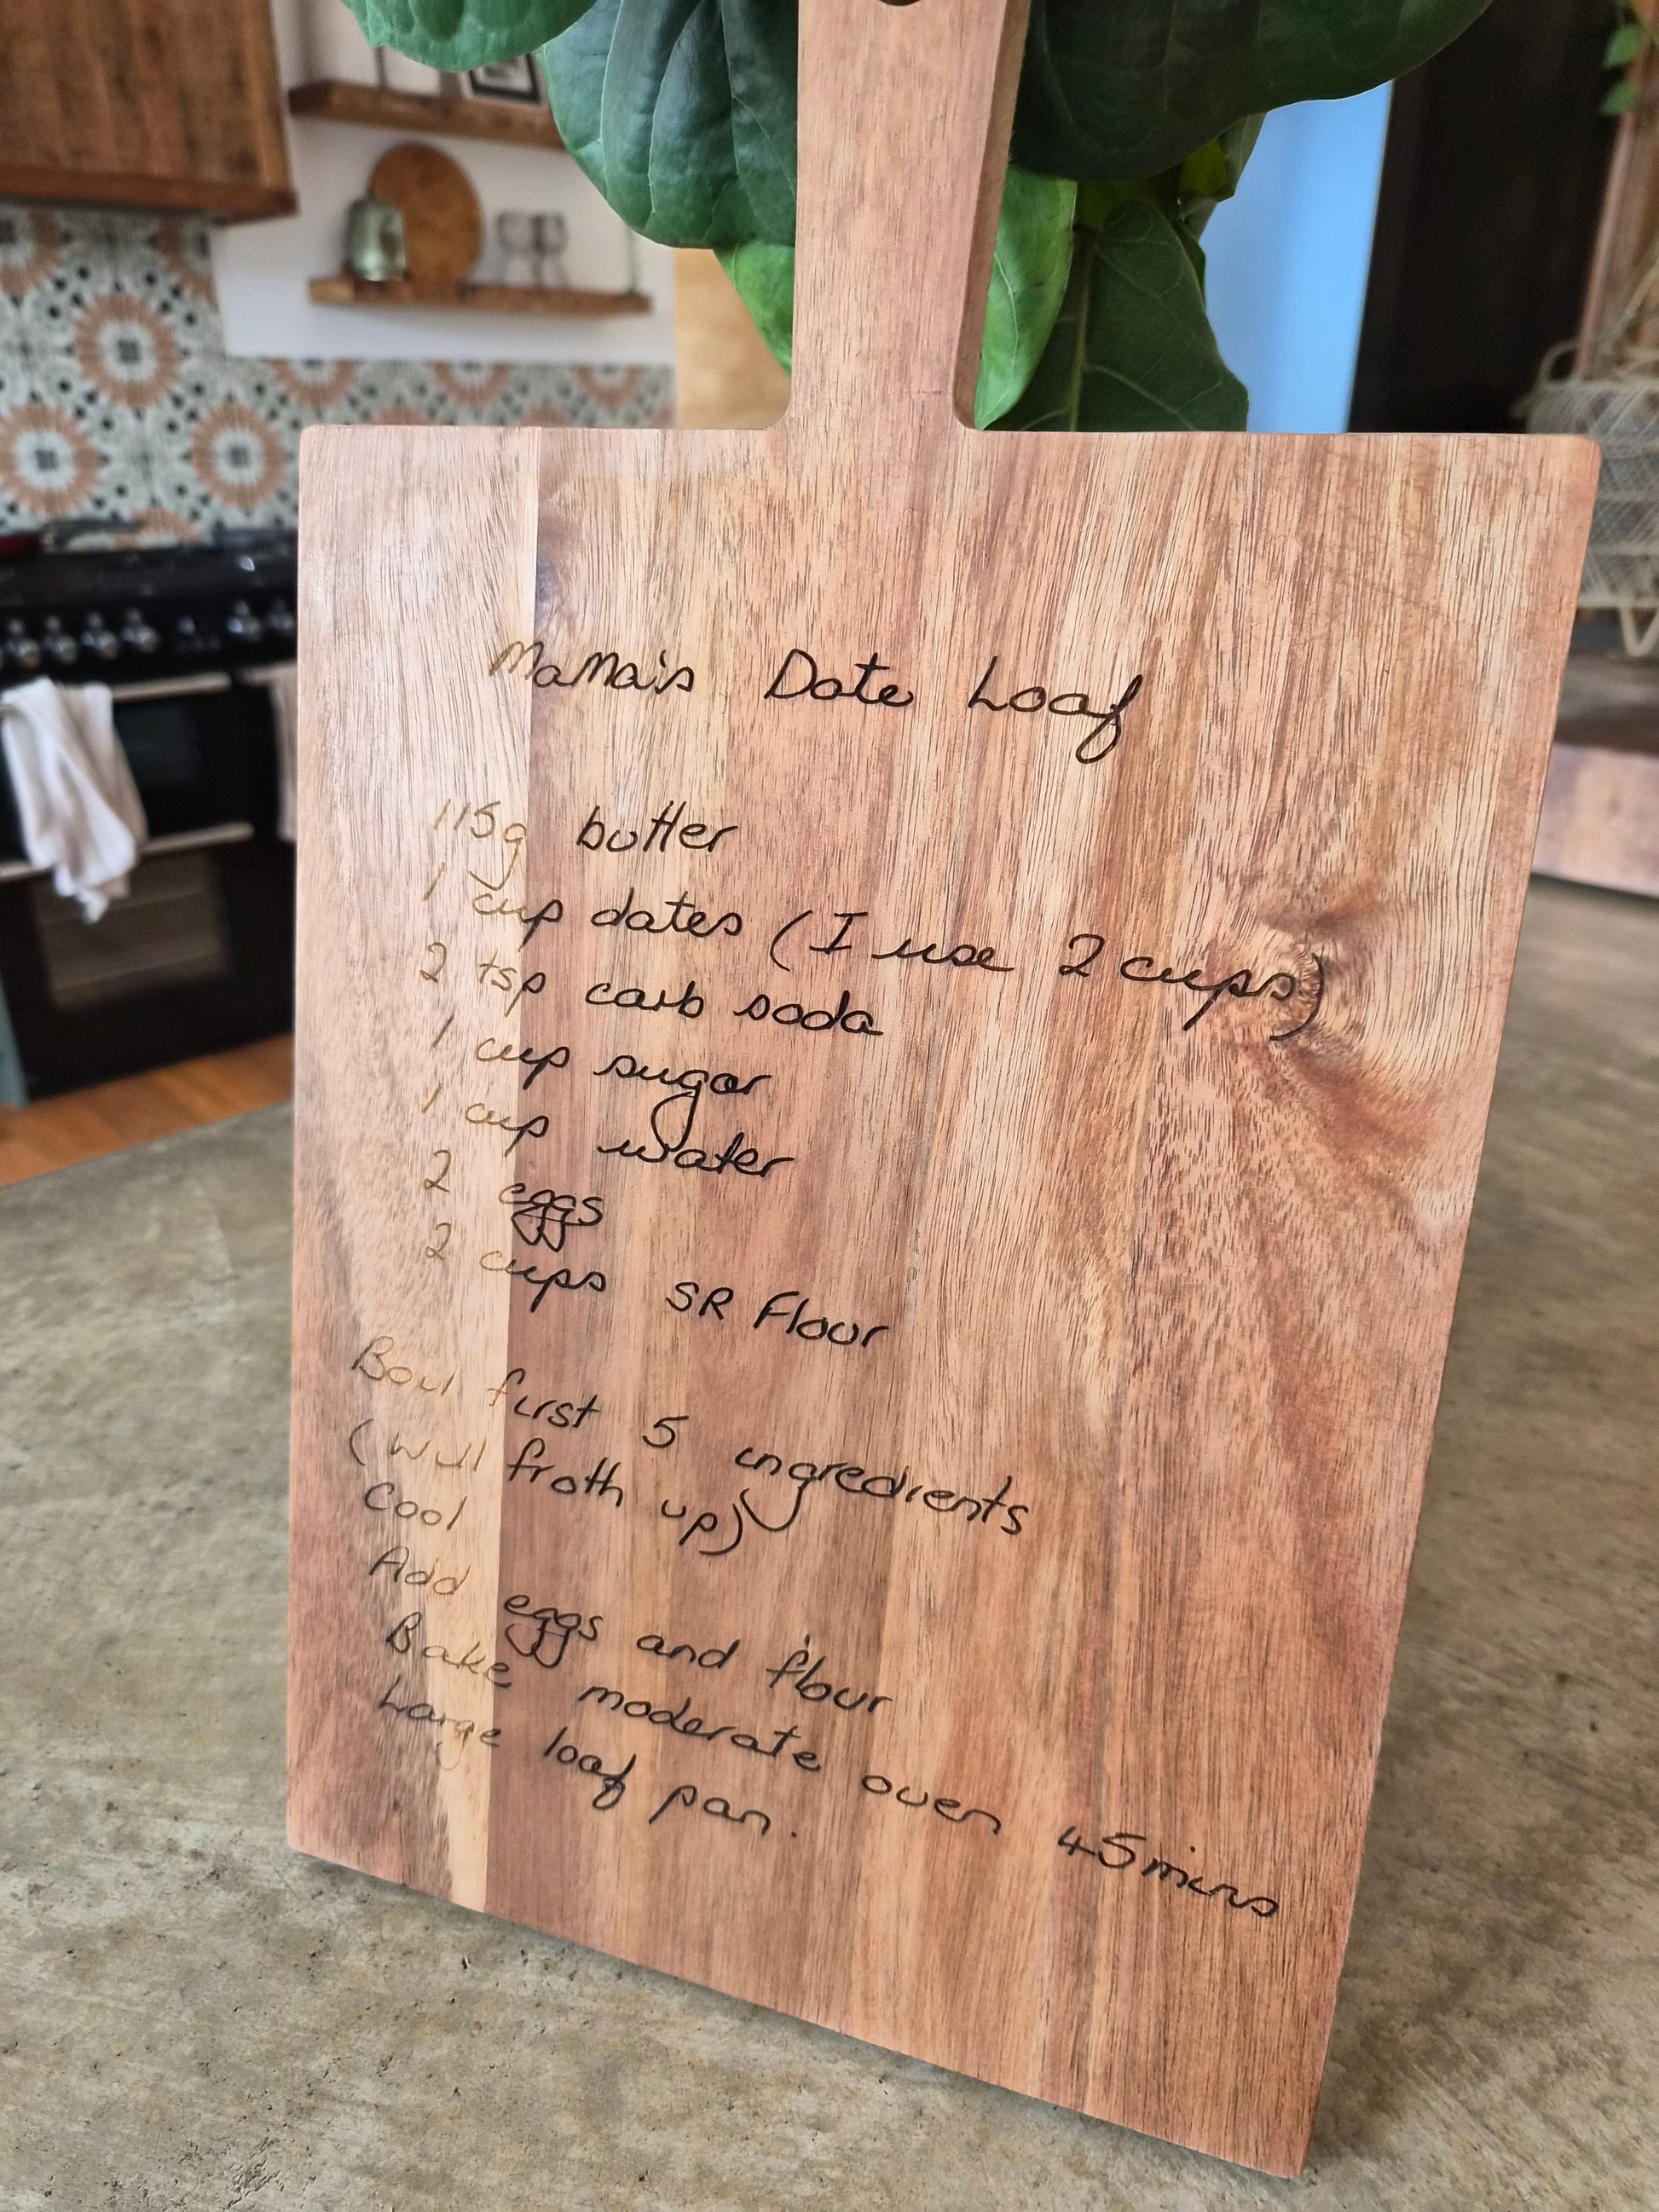 MaMa's Date Loaf
115g butter
1 cup dates (I use 2 cups)
2 tsp carb soda
1 cup sugar
1 cup water
2 eggs
2 cups SR Flour
Boil first 5 ingredients
(will froth up)
Cool
Add eggs and flour
Bake moderate oven 45 mins
Large loaf pan.